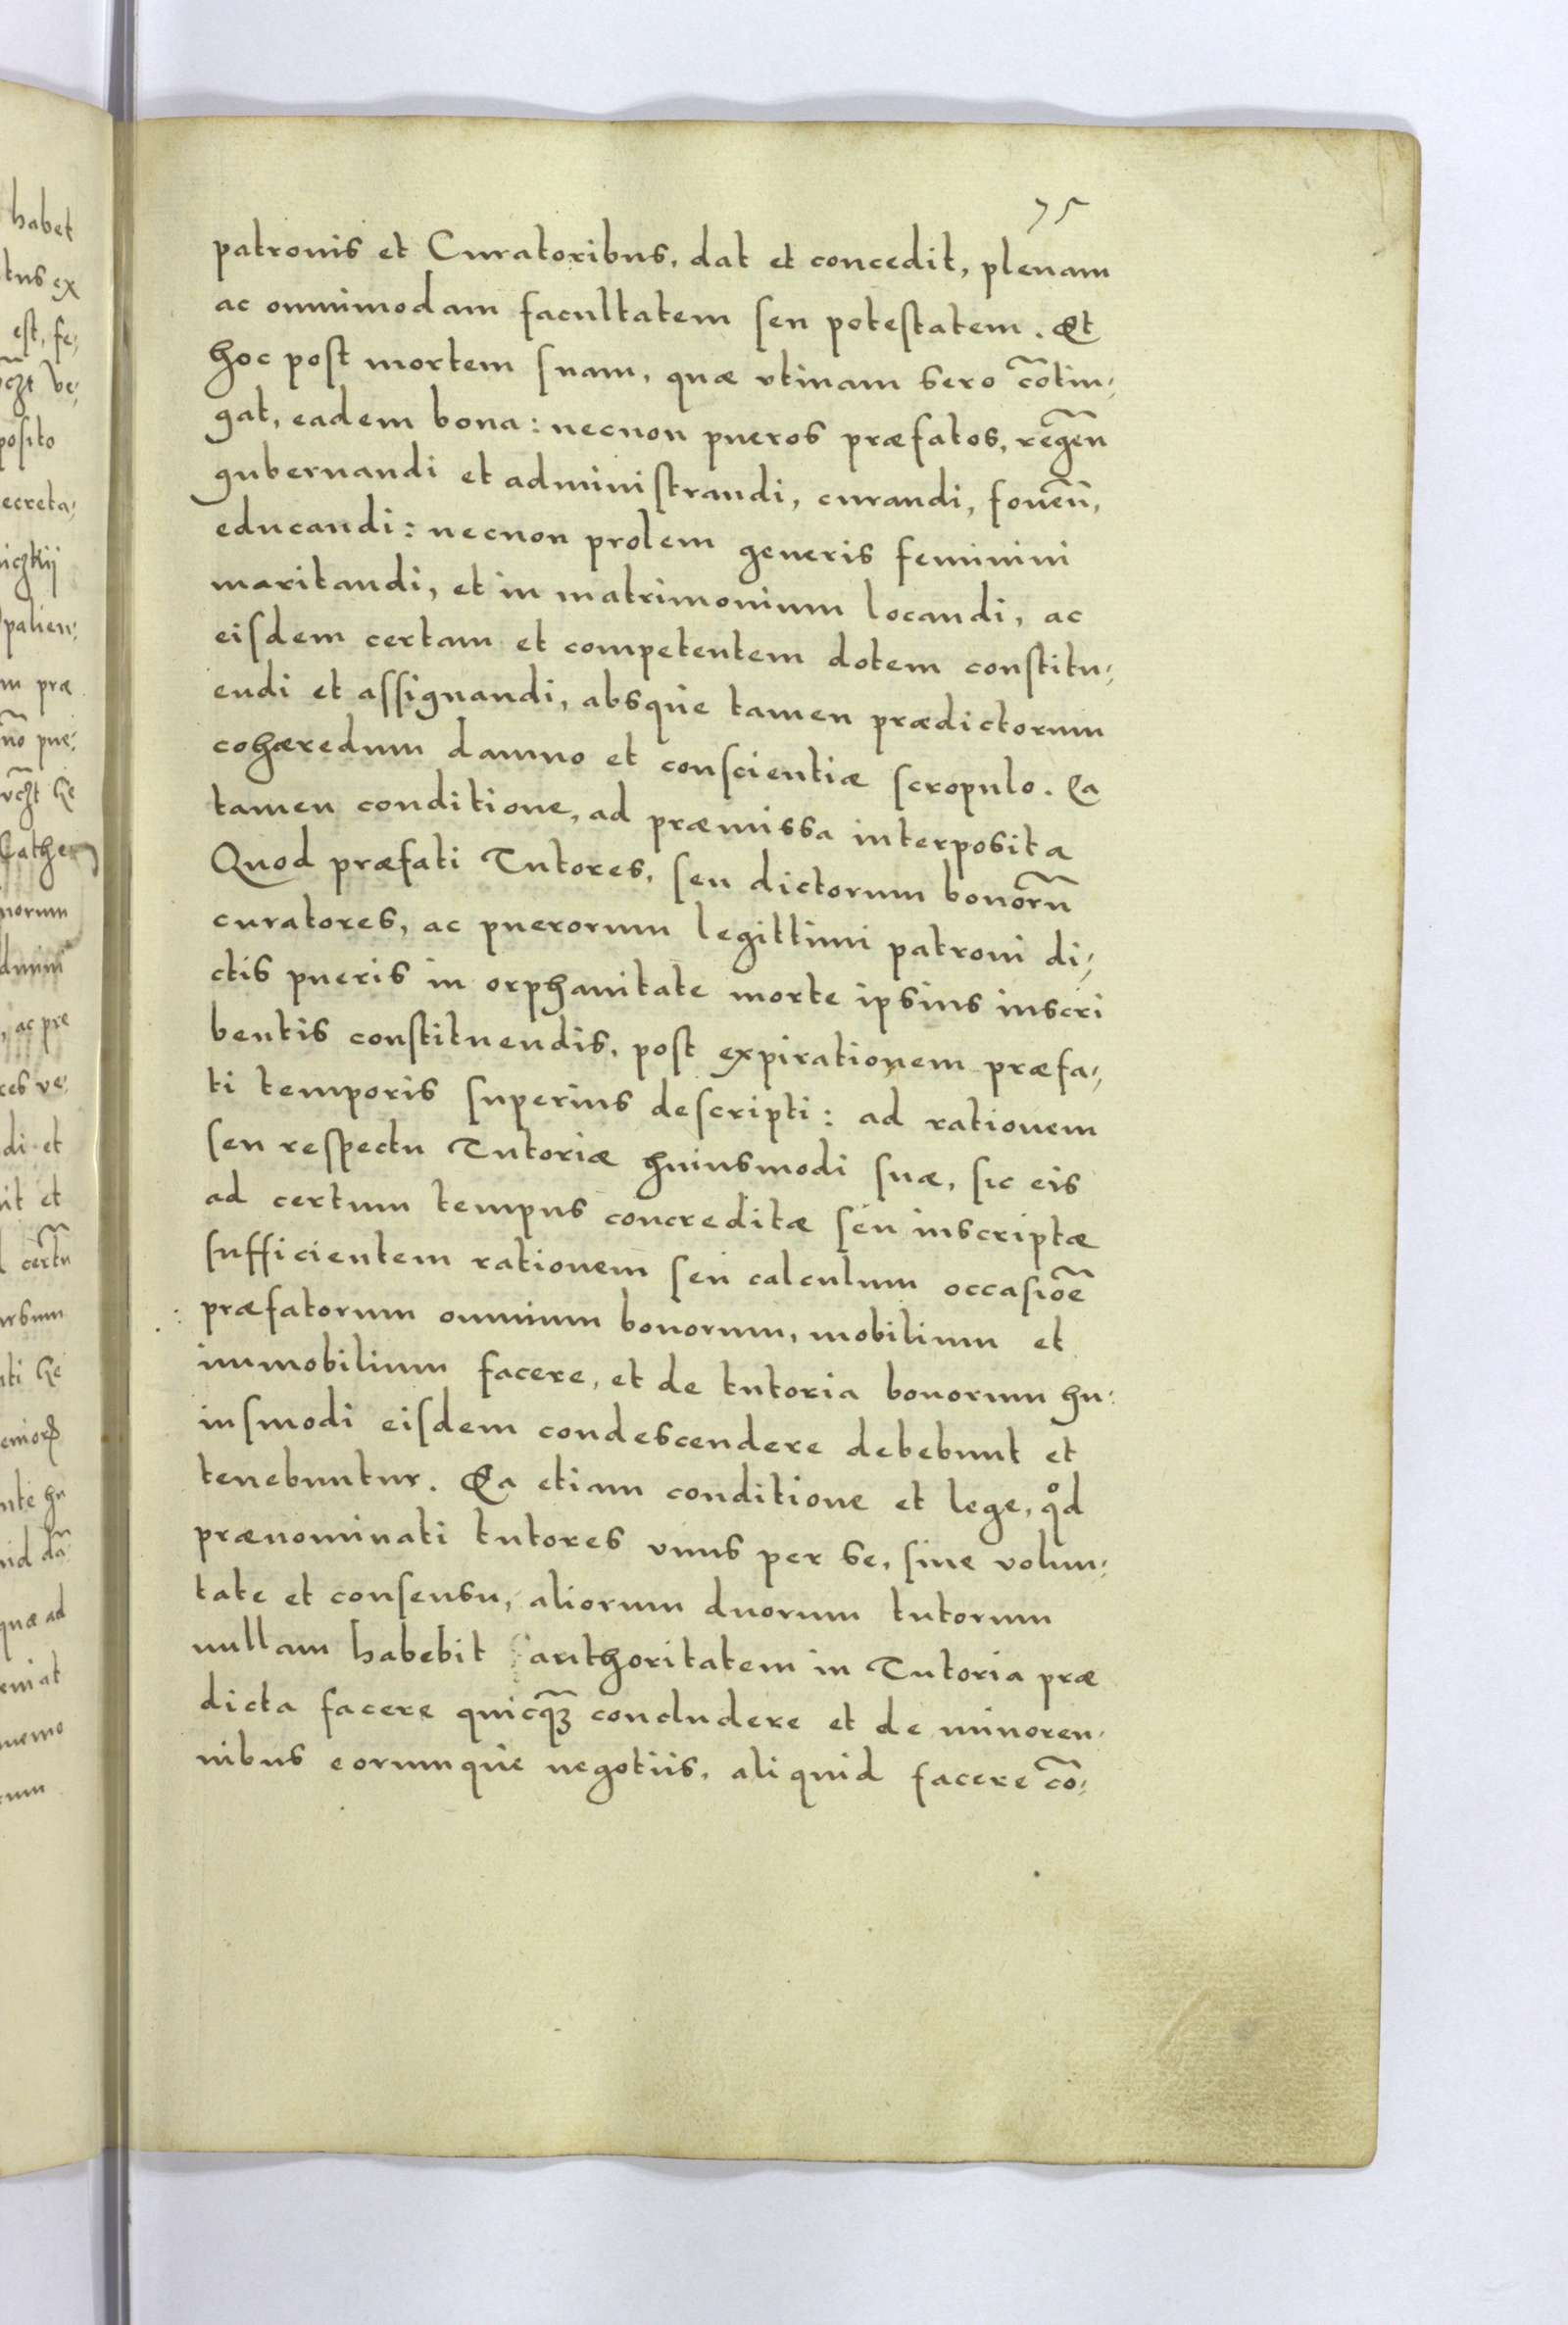 75
patronis et Curatoribus, dat et concedit, plenam
ac omnimodam facultatem seu potestatem. Et
hoc post mortem suam, quæ vtinam sero cõtin,
gat, eadem bona: necnon pueros præfatos, regeñ
gubernandi et administrandi, curandi, foueñ,
educandi: necnon prolem generis feminini
maritandi, et in matrimonium locandi, ac
eisdem certam et competentem dotem constitu,
endi et assignandi, absque tamen prædictorum
cohæredum damno et conscientiæ scropulo. Ea
tamen conditione, ad præmissa interposita
Quod præfati Tutores, seu dictorum bonorũ
curatores, ac puerorum legittimi patroni di,
ctis pueris in orphanitate morte ipsius inscri
bentis constituendis, post expirationem præfa,
ti temporis superius descripti: ad rationem
seu respectu Tutoriæ huiusmodi suæ, sic eis
ad certum tempus concreditæ seu inscriptæ
sufficientem rationem seu calculum occasiõe
præfatorum omnium bonorum, mobilium et
immobilium facere, et de tutoria bonorum hu:
iusmodi eisdem condescendere debebunt et
tenebuntur. Ea etiam conditione et lege, qͦd
prænominati tutores vnus per se, sine volun,
tate et consensu, aliorum duorum tutorum
nullam habebit authoritatem in Tutoria præ
dicta facere quicq̃ꝫ concludere et de minoren,
nibus eorumque negotiis, aliquid facere cõ,
habet
tus ex
est, fe,
ve,
posito
ecreta,
iczkij
palien,
m præ
ño pue,
he
Cathe
norum
dmini
, ac pre
res ve,
di et
it et
certũ
rsum
ti he
nte hu
id dã
quæ ad
eniat
nemo
rum